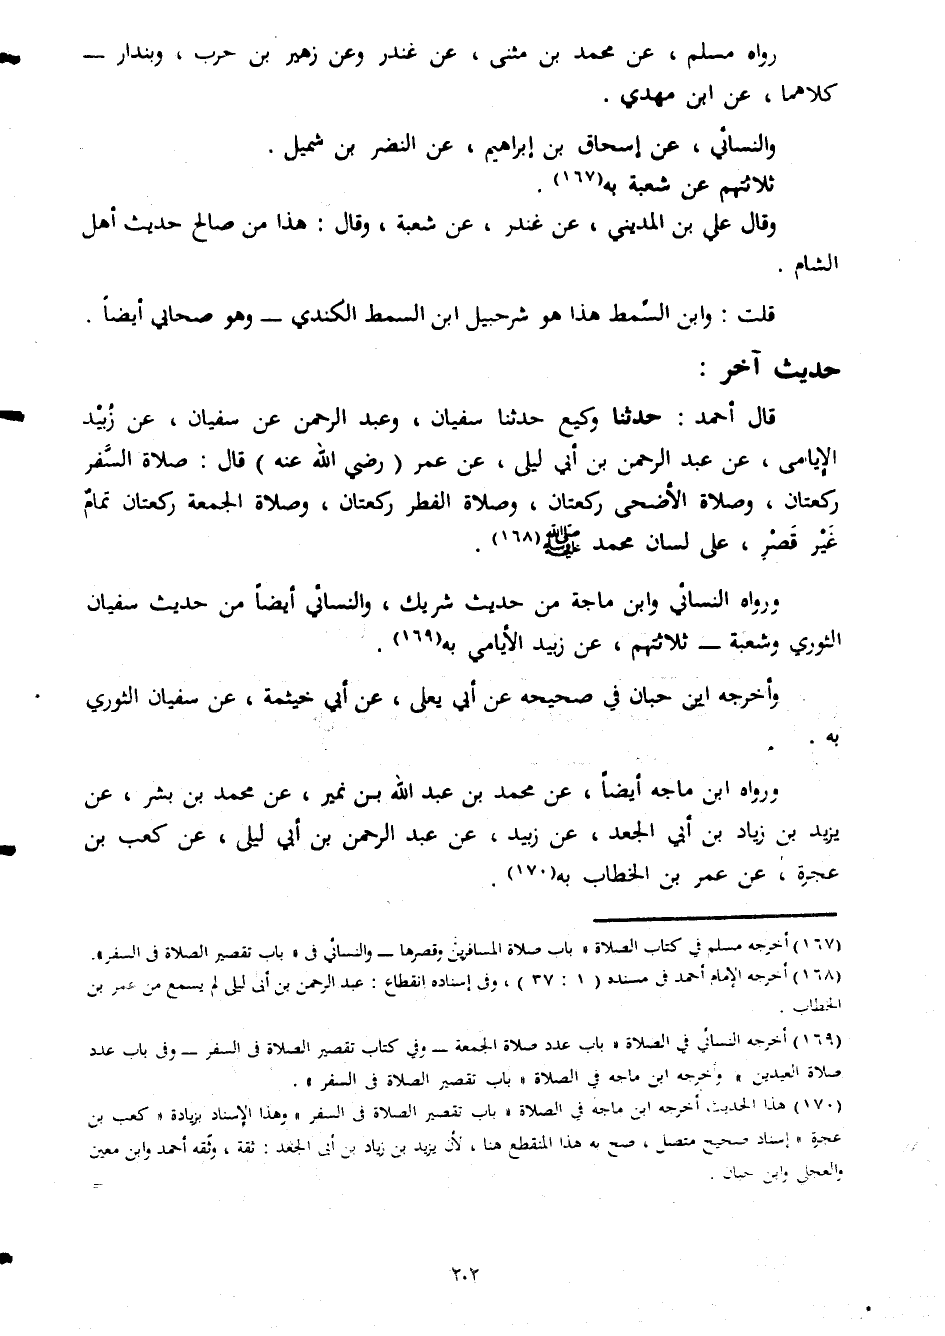 رواه مسلم ، عن محمد بن مثنى ، عن غندر وعن زهير بن حرب ، وبندار ــ
كلاهما ، عن ابن مهدي .
والنسائي ، عن إسحاق بن إبراهيم ، عن النضر بن شميل .
ثلاثتهم عن شعبة به(١٦٧) .
وقال علي بن المديني ، عن غندر ، عن شعبة ، وقال : هذا من صالح حديث أهل
الشام .
قلت : وابن السّمط هذا هو شرحبيل ابن السمط الكندي ــ وهو صحابي أيضاً .
حديث آخر :
قال أحمد : حدثنا وكيع حدثنا سفيان ، وعبد الرحمن عن سفيان ، عن زُبيْد
الإيامى ، عن عبد الرحمن بن أبي ليلى ، عن عمر ( رضي الله عنه ) قال : صلاة السَّفر
ركعتان ، وصلاة الأضحى ركعتان ، وصلاة الفطر ركعتان ، وصلاة الجمعة ركعتان تمامٌ
غَيْر قَصْرٍ ، على لسان محمد ﷺ(١٦٨) .
ورواه النسائي وابن ماجة من حديث شريك ، والنسائي أيضاً من حديث سفيان
الثوري وشعبة ــ ثلاثتهم ، عن زبيد الأيامي به(١٦٩) .
وأخرجه ابن حبان في صحيحه عن أبي يعلى ، عن أبي خيثمة ، عن سفيان الثوري
به .
ورواه ابن ماجه أيضاً ، عن محمد بن عبد الله بن نمير ، عن محمد بن بشر ، عن
يزيد بن زياد بن أبي الجعد ، عن زبيد ، عن عبد الرحمن بن أبي ليلى ، عن كعب بن
عجرة ، عن عمر بن الخطاب به(١٧٠) .
(١٦٧) أخرجه مسلم في كتاب الصلاة » باب صلاة المسافرين وقصرها ــ والنسائي فى « باب تقصير الصلاة فى السفر».
(١٦٨) أخرجه الإمام أحمد فى مسنده ( ١ : ٣٧ ) ، وفى إسناده انقطاع : عبد الرحمن بن أبى ليلى لم يسمع من عمر بن
الخطاب .
(١٦٩) أخرجه النسائي في الصلاة « باب عدد صلاة الجمعة ــ وفي كتاب تقصير الصلاة فى السفر ــ وفى باب عدد
صلاة العيدين » وأخرجه ابن ماجه في الصلاة « باب تقصير الصلاة فى السفر » .
(١٧٠) هذا الحديث أخرجه ابن ماجه في الصلاة « باب تقصير الصلاة فى السفر » وهذا الإسناد بزيادة « كعب بن
عجرة » إسناد صحيح متصل ، صح به هذا المنقطع هنا ، لأن يزيد بن زياد بن أبى الجعد : ثقة ، وثّقه أحمد وابن معين
والعجلي وابن حبان .
=
٢٠٢